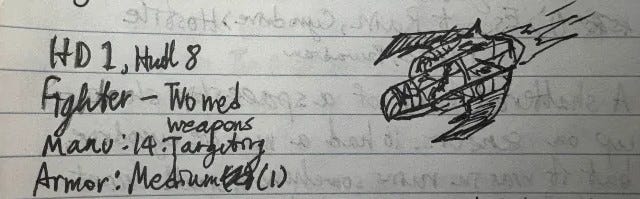 HD 1, Hull 8
Fighter - Two med
weapons
Manu: 14. Targeting
Armor: Medium (1)